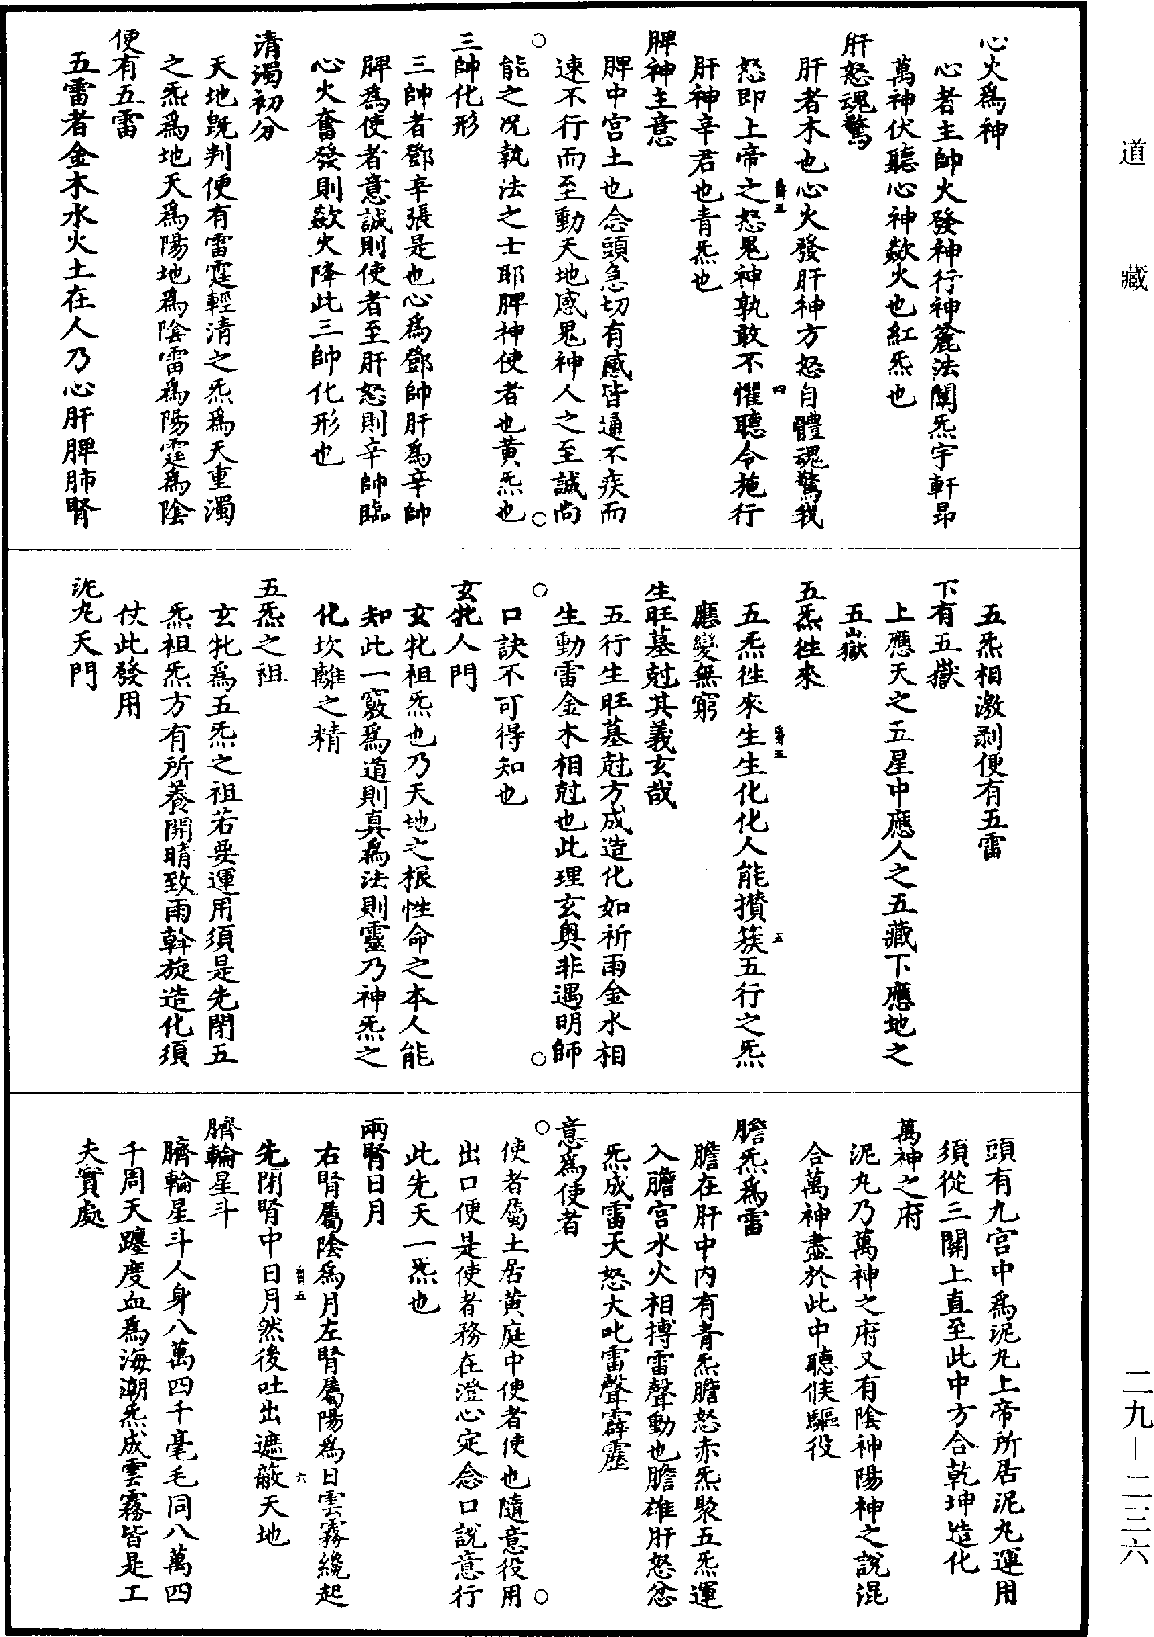 道藏
心火爲神
心者主帥火發神行神麄法闡炁宇軒昂
萬神伏聽心神歘火也紅炁也
肝怒魂驚
肝者木也心火發肝神方怒自體魂驚我
怒即上帝之怒鬼神孰敢不懼聽令施行
肝神辛君也青炁也
脾神主意
脾中宫土也念頭急切有感皆通不疾而
速不行而至動天地感鬼神人之至誠尚
能之况執法之士耶脾神使者也黄炁也
三帥化形
三帥者鄧辛張是也心爲鄧帥肝爲辛帥
脾爲使者意誠則使者至肝怒則辛帥臨
心火奮發則歘火降此三帥化形也
清濁初分
天地旣判便有雷霆輕清之炁爲天重濁
之炁爲地天爲陽地爲陰雷爲陽霆爲陰
便有五雷
五雷者金木水火土在人乃心肝脾肺腎
五炁相激剥便有五雷
下有五嶽
上應天之五星中應人之五藏下應地之
五嶽
五炁徃來
五炁徃來生生化化人能攢簇五行之炁
應變無窮
生旺墓尅其義玄哉
五行生旺墓尅方成造化如祈雨金水相
生動雷金木相尅也此理玄奥非遇明師
口訣不可得知也
玄牝人門
玄牝祖炁也乃天地之根性命之本人能
知此一竅爲道則真爲法則靈乃神炁之
化坎離之精
五炁之祖
玄牝爲五炁之祖若要運用須是先閉五
炁祖炁方有所養開晴致雨斡旋造化須
仗此發用
泥丸天門
頭有九宫中爲泥丸上帝所居泥丸運用
須從三關上直至此中方合乾坤造化
萬神之府
泥丸乃萬神之府又有陰神陽神之說混
合萬神盡於此中聽候驅役
膽炁爲雷
膽在肝中内有青炁膽怒赤炁聚五炁運
入膽宫水火相搏雷聲動也膽雄肝怒忿
炁成雷天怒大叱雷聲霹靂
意爲使者
使者屬土居黄庭中使者使也隨意役用
出口便是使者務在澄心定念口說意行
此先天一炁也
兩腎日月
右腎屬陰爲月左腎屬陽爲日雲霧纔起
先閉腎中日月然後吐出遮蔽天地
臍輪星斗
臍輪星斗人身八萬四千毫毛同八萬四
千周天躔度血爲海潮炁成雲霧皆是工
夫實處
二九—二三六